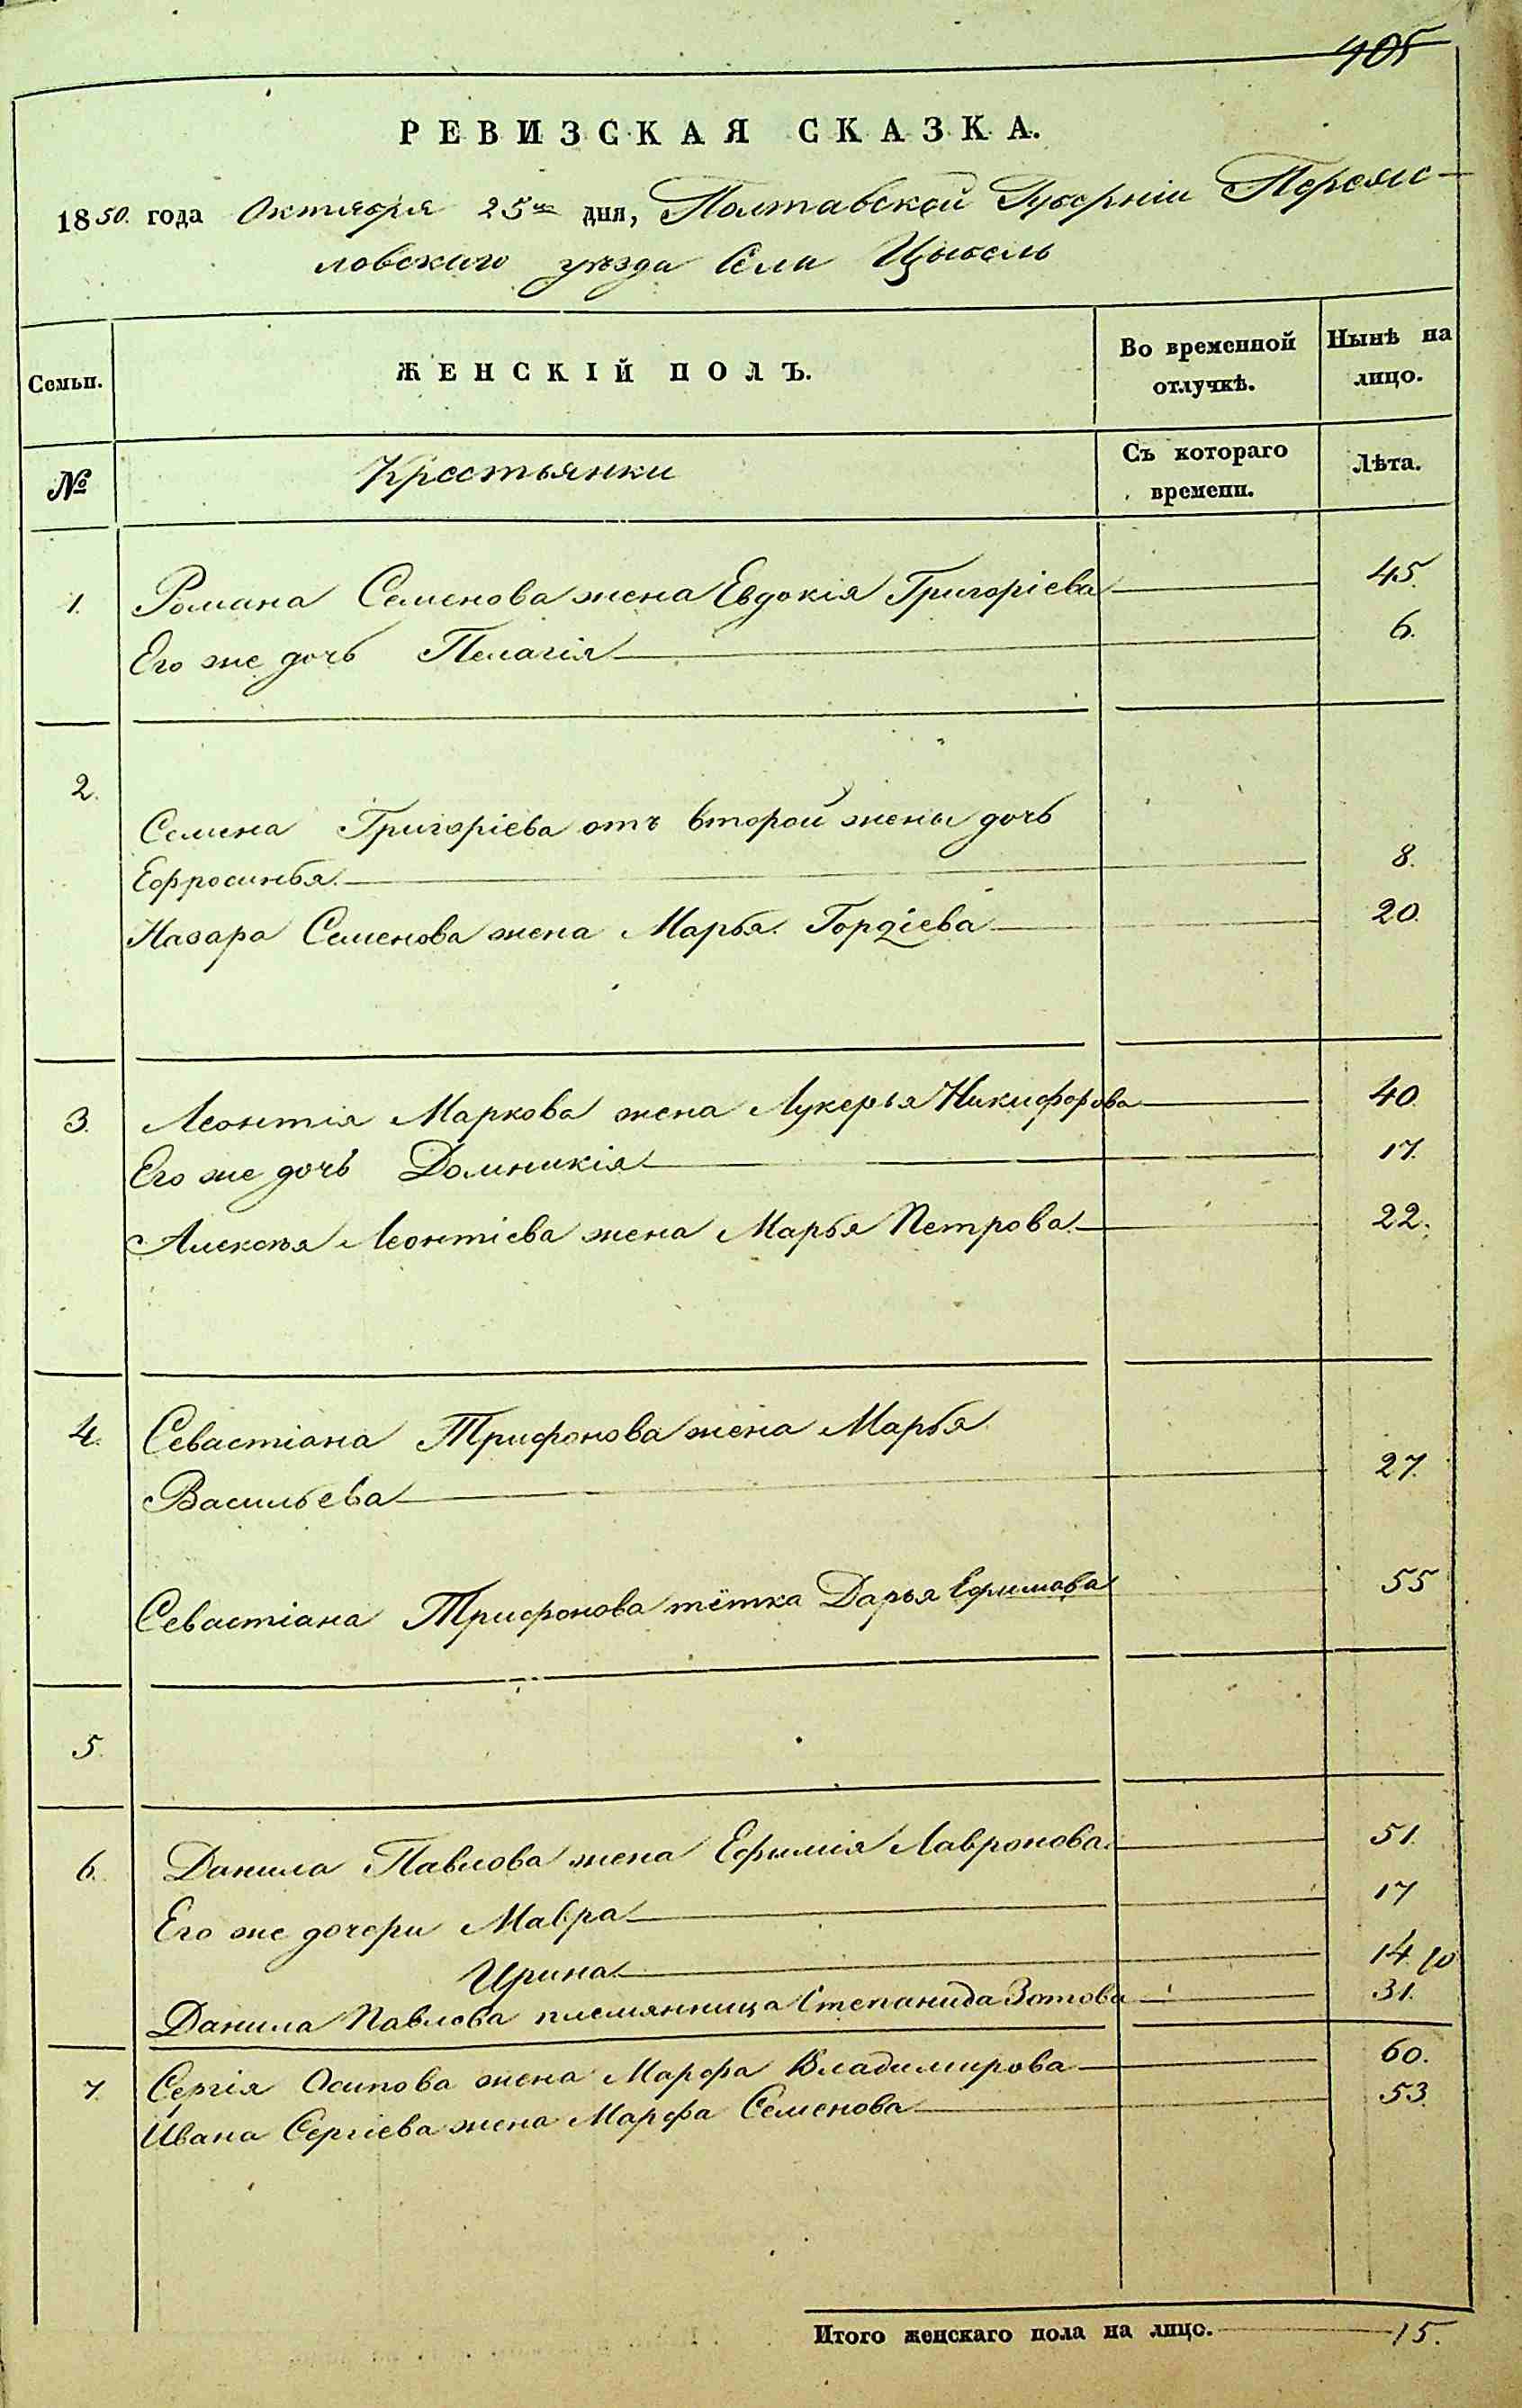 405
РЕВИЗСКАЯ СКАЗКА.
1850. года Октября 25го дня, Полтавской Губерніи Переяс-
ловскаго уѣзда Села Цыбель
Семьи.
ЖЕНСКІЙ ПОЛЪ.
Во временной отлучкѣ.
Нынѣ на лицо.
№
Крестьянки
Съ котораго времени.
Лѣта.
1. Романа Семенова жена Евдокія Григоріева 45.
Его же дочь Пелагія 6.
2.
Семена Григоріева отъ второй жены дочь
Ефросинья. 8.
Назара Семенова жена Марья Гордіева 20.
3. Леонтія Маркова жена Лукерья Никифорова 40.
Его же дочь Домникія 17.
Алексѣя Леонтіева жена Марья Петрова 22.
4. Севастіана Трифонова жена Марья
Васильева 27.
Севастіана Трифонова тётка Дарья Ефимова 55
5.
6. Данила Павлова жена Ефимія Лавронова. 51.
Его же дочери Мавра 17
Ирина 14.
Данила Павлова племянница Степанида Зотова 31.
7. Сергія Осипова жена Марфа Владимирова 60.
Ивана Сергіева жена Марфа Семенова 53.
Итого женскаго пола на лицо. 15.